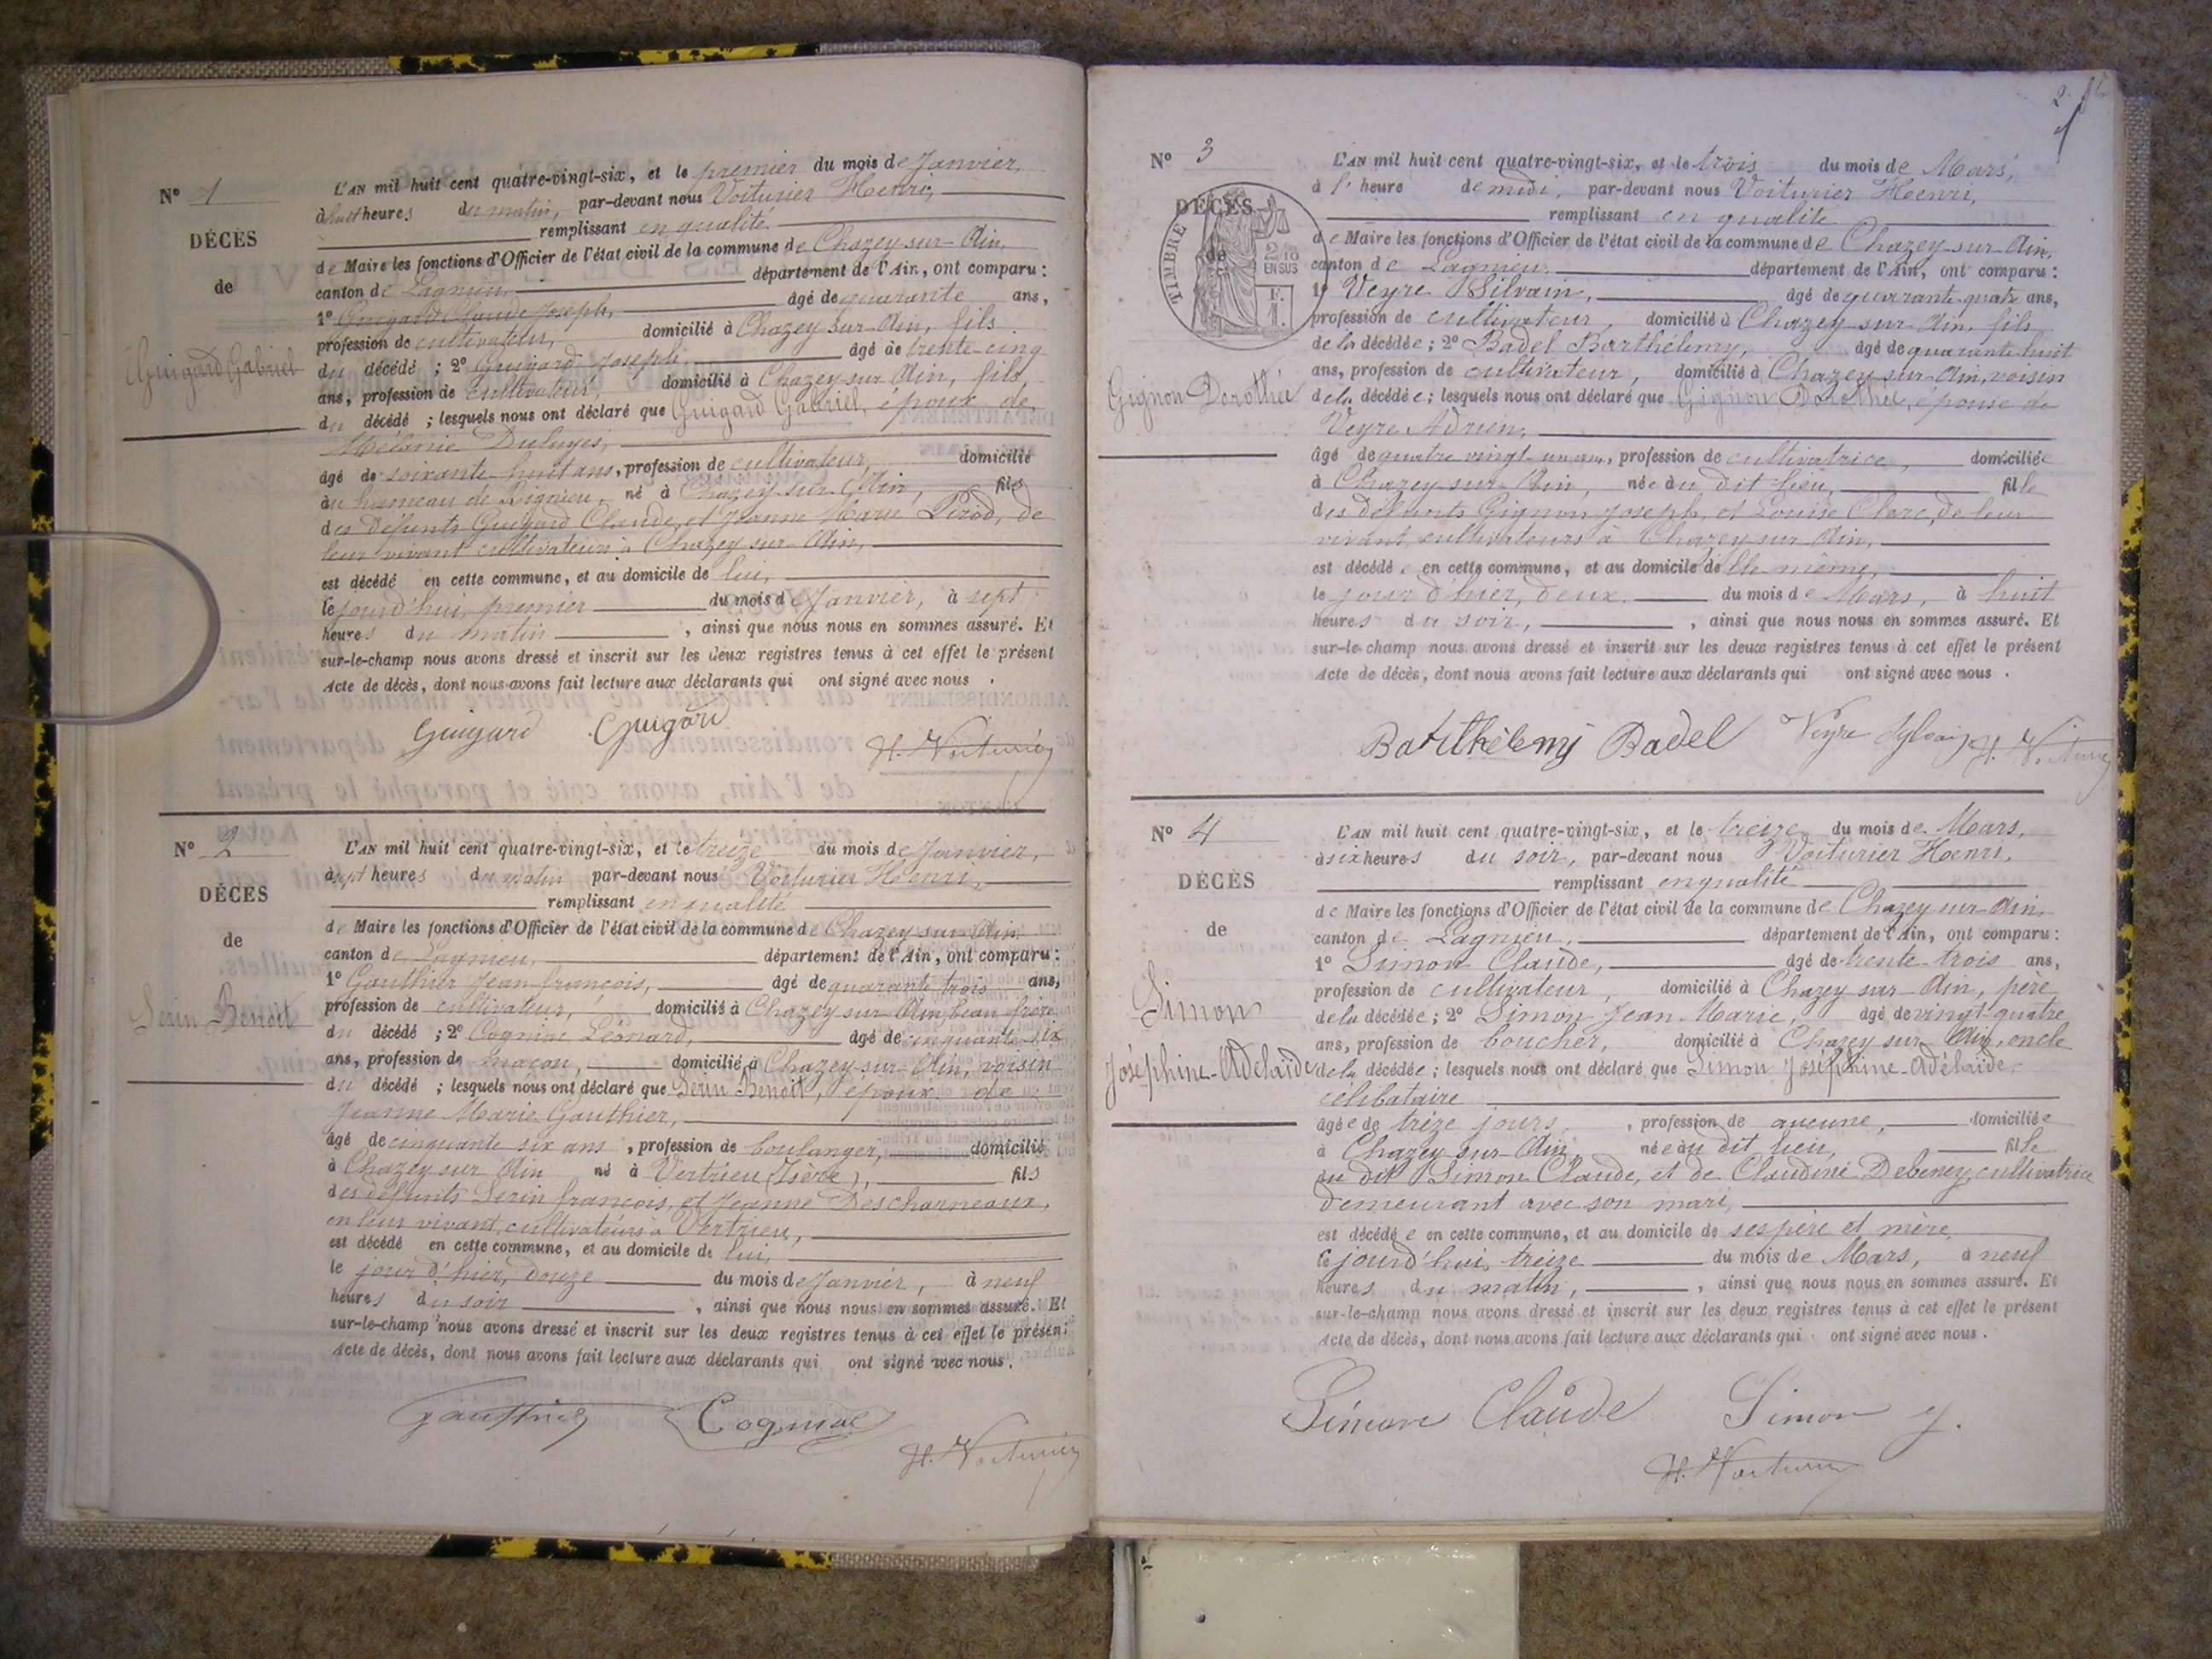 N° 1
DÉCÈS
de
Guigard Gabriel
L'AN mil huit cent quatre-vingt-six, et le premier du mois de Janvier,
à huit heures du matin, par-devant nous Voiturier Henri,
remplissant en qualité
de Maire les fonctions d'Officier de l'état civil de la commune de Chazey-sur-Ain,
canton de Lagnieu, département de l'Ain, ont comparu :
1° Guigard Claude Joseph, âgé de quarante ans,
profession de cultivateur, domicilié à Chazey-sur-Ain, fils
du décédé ; 2° Guigard Joseph, âgé de trente-cinq
ans, profession de cultivateur, domicilié à Chazey-sur-Ain, fils,
du décédé ; lesquels nous ont déclaré que Guigard Gabriel, époux de
Mélanie
âgé de soixante huit ans, profession de cultivateur, domicilié
au hameau de Rignieu, né à Chazey-sur-Ain, fils
des défunts Guigard Claude, et Jeanne Marie de
leur vivant cultivateurs à Chazey-sur-Ain,
est décédé en cette commune, et au domicile de lui,
le jourd'hui, premier du mois de Janvier, à sept
heures du matin, ainsi que nous nous en sommes assuré. Et
sur-le-champ nous avons dressé et inscrit sur les deux registres tenus à cet effet le présent
Acte de décès, dont nous avons fait lecture aux déclarants qui ont signé avec nous.
Guigard Guigard
H. Voiturier
N° 2
DÉCÈS
de
Serin Benoit
L'AN mil huit cent quatre-vingt-six, et le treize du mois de Janvier,
à sept heures du matin par-devant nous Voiturier Henri,
remplissant en qualité
de Maire les fonctions d'Officier de l'état civil de la commune de Chazey-sur-Ain
canton de Lagnieu, département de l'Ain, ont comparu :
1° Gauthier Jean françois, âgé de quarante trois ans,
profession de cultivateur, domicilié à Chazey-sur-Ain, beau frère
du décédé ; 2° Léonard, âgé de cinquante six
ans, profession de maçon, domicilié à Chazey-sur-Ain, voisin
du décédé ; lesquels nous ont déclaré que Serin Benoit, époux de
Jeanne Marie Gauthier,
âgé de cinquante six ans, profession de boulanger, domicilié
à Chazey sur Ain né à Vertrieu (Isère), fils
des défunts Serin françois, et Jeanne Descharneaux,
en leur vivant, cultivateurs à Vertrieu,
est décédé en cette commune, et au domicile de lui,
le jour d'hier, douze du mois de Janvier, à neuf
heures du soir, ainsi que nous nous en sommes assuré. Et
sur-le-champ nous avons dressé et inscrit sur les deux registres tenus à cet effet le présent
Acte de décès, dont nous avons fait lecture aux déclarants qui ont signé avec nous.
Gauthier
H. Voiturier
2
N° 3
DÉCÈS
de
TIMBRE
2/10
EN SUS
Gignon Dorothée
L'AN mil huit cent quatre-vingt-six, et le trois du mois de Mars,
à l' heure de midi, par-devant nous Voiturier Henri,
remplissant en qualité
de Maire les fonctions d'Officier de l'état civil de la commune de Chazey-sur-Ain,
canton de Lagnieu département de l'Ain, ont comparu :
1° Veyre Silvain, âgé de quarante-quatre ans,
profession de cultivateur, domicilié à Chazey-sur-Ain, fils
de la décédée ; 2° Badel Barthélemy, âgé de quarante huit
ans, profession de cultivateur, domicilié à Chazey-sur-Ain, voisin
de la décédée ; lesquels nous ont déclaré que Gignon Dorothée, épouse de
Veyre Adrien,
âgé de quatre vingt-un ans, profession de cultivatrice, domiciliée
à Chazey-sur-Ain, née au dit lieu, fille
des défunts Gignon Joseph, et Louise Clerc, de leur
vivant, cultivateurs à Chazey sur Ain,
est décédée en cette commune, et au domicile d'elle même,
le jour d'hier, deux du mois de Mars, à huit
heures du soir, ainsi que nous nous en sommes assuré. Et
sur-le-champ nous avons dressé et inscrit sur les deux registres tenus à cet effet le présent
Acte de décès, dont nous avons fait lecture aux déclarants qui ont signé avec nous.
Barthélemy Badel Veyre Sylvain H. Voiturier
N° 4
DÉCÈS
de
Simon
Joséphine-Adélaïde
L'AN mil huit cent quatre-vingt-six, et le treize du mois de Mars,
à six heures du soir, par-devant nous Voiturier Henri,
remplissant en qualité
de Maire les fonctions d'Officier de l'état civil de la commune de Chazey-sur-Ain,
canton de Lagnieu, département de l'Ain, ont comparu :
1° Simon Claude, âgé de trente-trois ans,
profession de cultivateur, domicilié à Chazey sur-Ain, père
de la décédée ; 2° Simon Jean-Marie, âgé de vingt-quatre
ans, profession de boucher, domicilié à Chazey sur Ain, oncle
de la décédée ; lesquels nous ont déclaré que Simon Joséphine-Adélaïde,
célibataire
âgée de treize jours, profession de aucune, domiciliée
à Chazey sur-Ain, née au dit lieu, fille
du dit Simon Claude, et de Claudine Debeney, cultivatrice
demeurant avec son mari,
est décédée en cette commune, et au domicile de ses père et mère,
le jourd'hui, treize du mois de Mars, à neuf
heures du matin, ainsi que nous nous en sommes assuré. Et
sur-le-champ nous avons dressé et inscrit sur les deux registres tenus à cet effet le présent
Acte de décès, dont nous avons fait lecture aux déclarants qui ont signé avec nous.
Simon Claude Simon J.
H. Voiturier